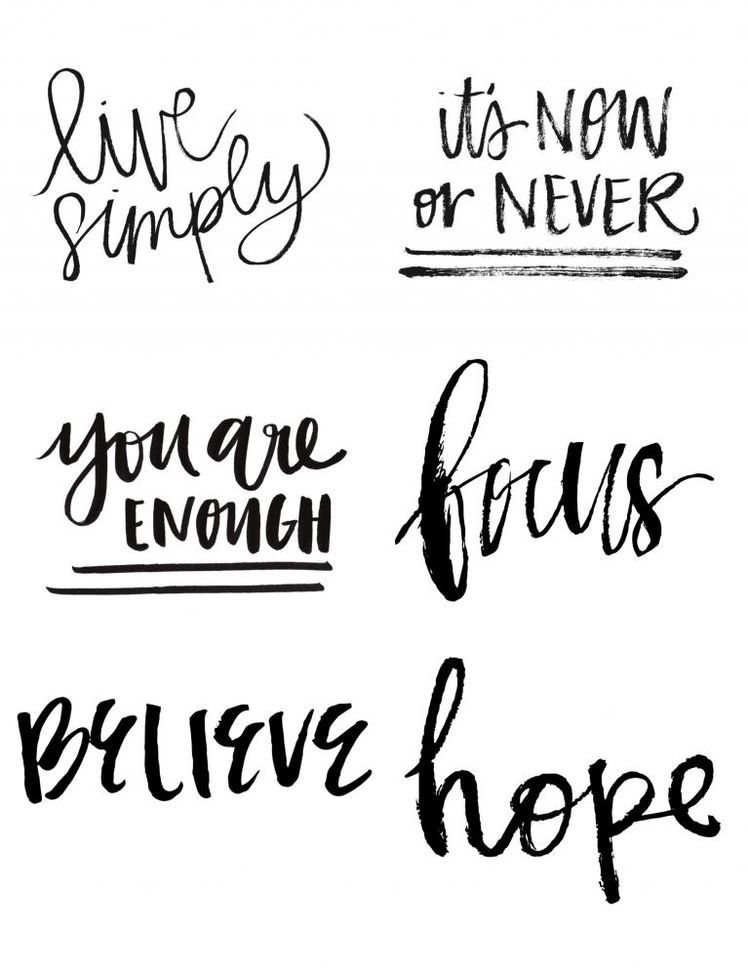 live
simply
it's NOW
or NEVER
you are
ENOUGH
focus
BELIEVE
hope